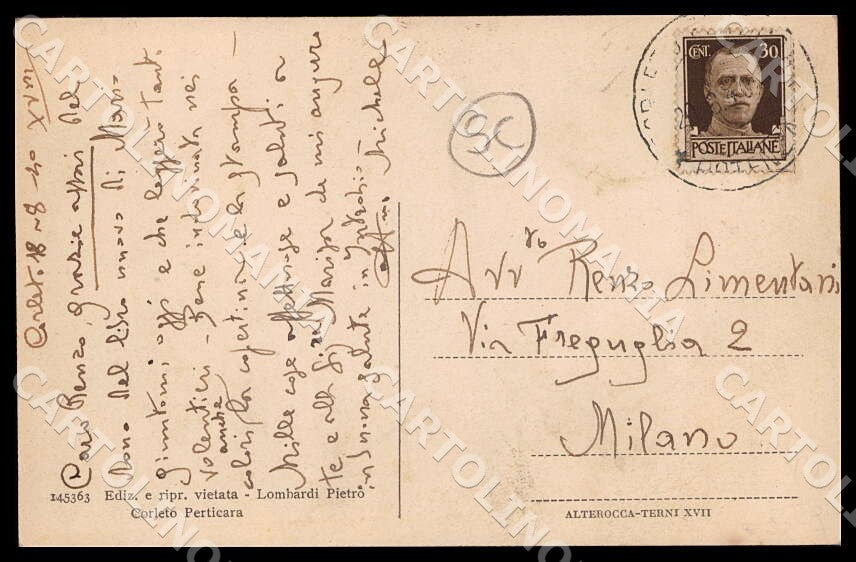 Corleto. 18-8-40 XVIII
Caro Renzo, grazie assai del
dono del libro nuovo di Mario
giuntomi oggi e che leggerò tanto
volentieri - Bene indovinata nei
anche
colori, la copertina, e la stampa -
Mille cose affettuose e saluti a
te e alla Sig.ra da mi auguro
in buona salute in
aff.mo Michele
CENT. 30
POSTE ITALIANE
SC
Avv.to Renzo Limentani
Via Freguglia 2
Milano
145363 Ediz. e ripr. vietata - Lombardi Pietro
Corleto Perticara
ALTEROCCA-TERNI XVII
CARTOLINOMANIA